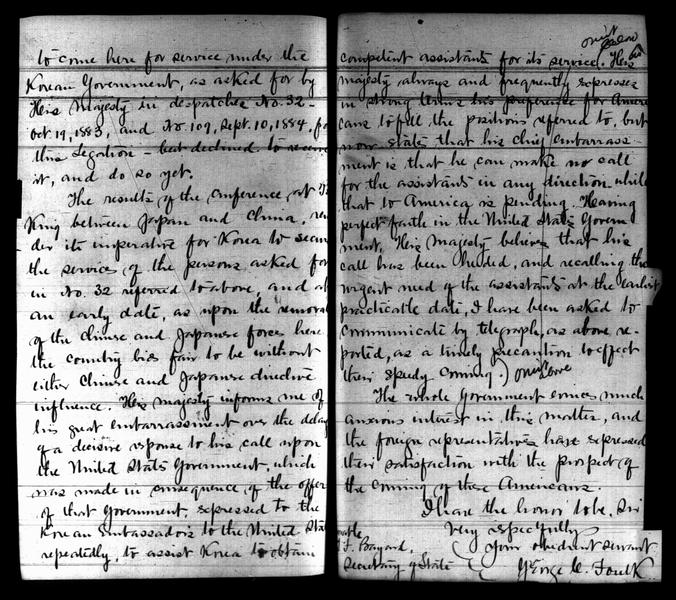 to come here for service under the
Korean Government, as asked for by
His Majesty in despatches No. 32 -
Oct. 19, 1883, and No. 109, Sept. 10, 1884,
this Legation - but declined to
it, and do so yet.
The results of the conference, at
King between Japan and China,
der it imperative for Korea to secure
the service of the persons asked for
in No. 32 referred to above, and at
an early date, as upon the removal
of the Chinese and Japanese forces here
the country bids fair to be without
either Chinese and Japanese directive
influence. His Majesty informs me of
his great embarrassment over the delay
of a decisive response to his call upon
the United States Government, which
was made in consequence of the offer
of that Government, expressed to the
Korean Embassadors to the United States
repeatedly, to assist Korea to obtain
omit
below
competent assistants for its service. His
Majesty always and frequently expresses
in strong terms his preference for Ameri
cans to fill the positions referred to, but
now states that his chief embarrass-
ment is that he can make no call
for the assistants in any direction while
that to America is pending. Having
perfect faith in the United States Govern
ment, His Majesty believes that his
call has been heeded, and recalling the
urgent need of the assistants at the earliest
practicable date, I have been asked to
communicate by telegraph, as above re-
ported, as a timely precaution to effect
their speedy coming.) omit above
The whole Government evinces much
anxious interest in this matter, and
the foreign representatives have expressed
their satisfaction with the prospect of
the coming of these Americans.
I have the honor to be, Sir
Very respectfully
Your obedient servant
George C. Foulk
F. Bayard,
Secretary of State